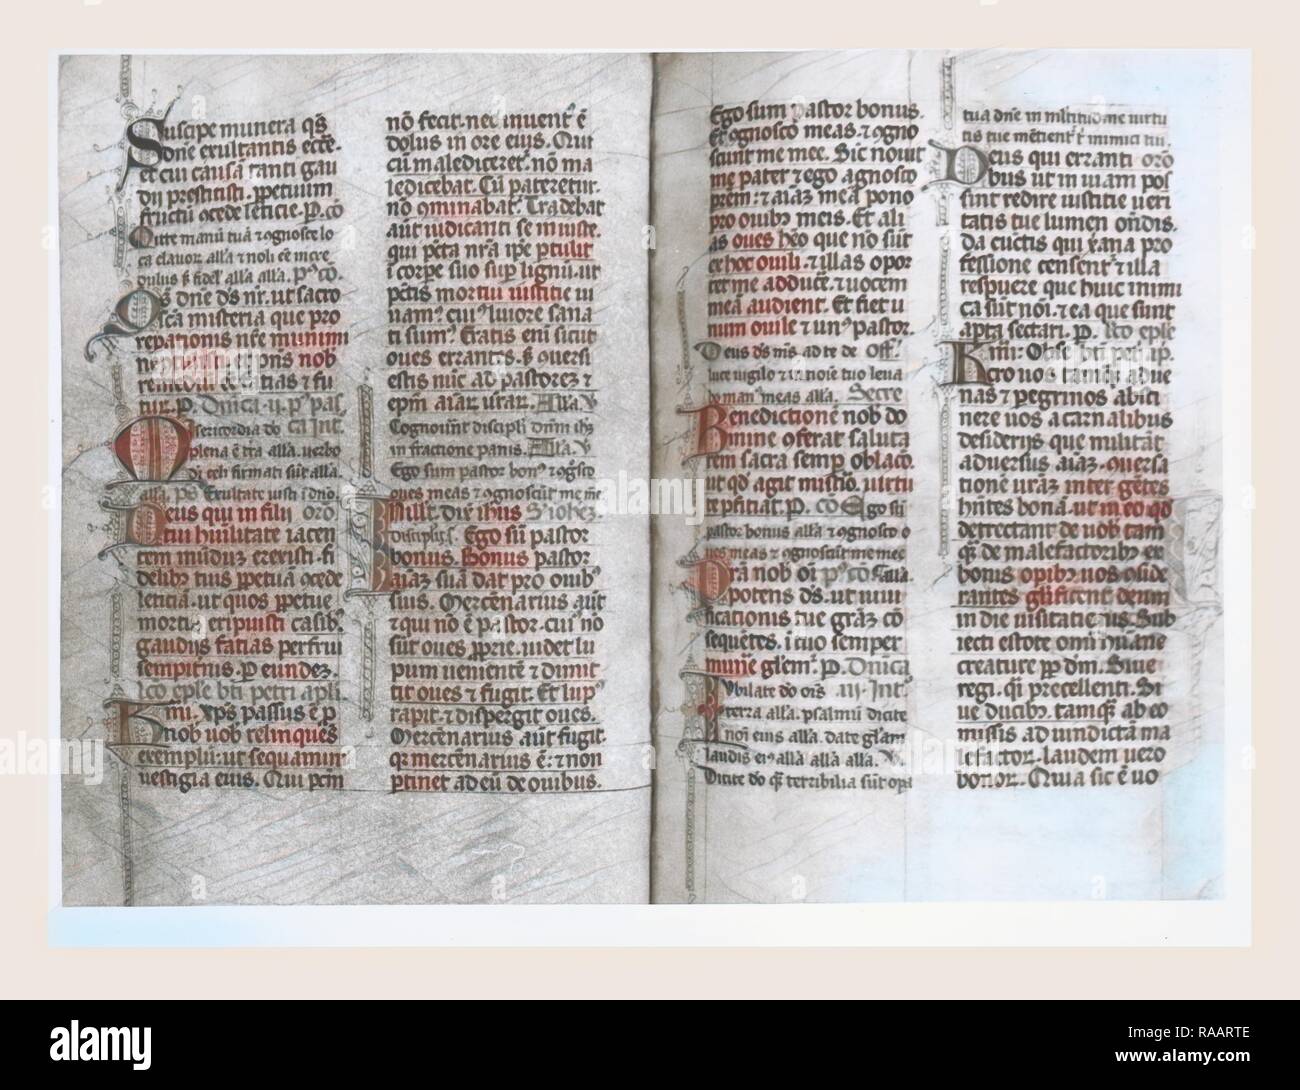 Suscipe munera q̄s
dn̄e exultantis eccl̄e.
et cui causā tanti gau
dii prestitisti. ꝑpetuum
fructū ↄcede leticie. P. cō
Mitte manū tuā ⁊ ↄgnosce lo
ca clauoꝝ all'a ⁊ noli eē incre
dulus s̄ fidel' all'a all'a. Pꝰ cō.
Qs dn̄e ds̄ nr̄. ut sacro
sc̄a misteria que pro
reparationis nr̄e munimi
remediū
tur. P. Dn̄ica .ij. pꝰ pas.
Misericordia do īnt.
plena ē t̄ra all'a. uerbo
di celi firmati sūt all'a.
all'a. ps̄ Exultate iusti ī dn̄o.
Deus qui in filij oro.
tui humilitate iacen
tem mūdum erexisti. fi
delibꝫ tuis ꝑpetuā ↄcede
leticiā. ut quos ꝑpetue
mortis eripuisti casibꝫ
gaudijs facias perfrui
sempiternis. P. eundeꝫ.
l'co ep̄le bt̄i petri apl'i.
Kmi. Xp̄s passus ē ꝑ
nob uob relinques
exemplū. ut sequamini
uestigia eius. Qui pctm̄
nō fecit. nec inuentꝰ ē
dolus in ore eius. Qui
cū malediceret. nō ma
ledicebat. Cū pateretur.
nō ↄminabat. Tradebat
aūt iudicanti se iniuste.
qui pctā nr̄a ip̄e ꝑtulit
ī corpe suo suꝑ lignū. ut
pctīs mortui iustitie ui
uamꝰ. cuiꝰ liuore sana
ti sumꝰ. Eratis eni sicut
oues errantes. s̄ ↄuersi
estis nūc ad pastorem ⁊
ep̄m aīaꝝ urāꝝ. All'a. V
Cognouerūt discipl'i dn̄m ih̄m
in fractione panis. All'a. V
Ego sum pastor bonꝰ ⁊ ↄgn̄sco
oues meas ⁊ ↄgnoscūt me me
In ill'. Dix' ihūs S' iohēꝫ.
discipl'is. Ego sū pastor
bonus. Bonus pastor
aīaꝫ suā dat pro ouibꝰ
suis. Mercēnarius aūt
⁊ qui nō ē pastor. cuiꝰ nō
sūt oues ꝓprie. uidet lu
pum uenientē ⁊ dimit
tit oues ⁊ fugit. Et lupꝰ
rapit. ⁊ dispergit oues.
Mercēnarius aūt fugit.
qꝛ mercēnarius ē. ⁊ non
ꝑtinet ad eū de ouibus.
Ego sum pastor bonus.
Et ↄgnosco meas. ⁊ ↄgno
scunt me mee. Sic nouit
me pater ⁊ ego agnosco
prēm. ⁊ aīaꝫ meā pono
pro ouibꝫ meis. Et ali
as oues hēo que nō sūt
ex hoc ouili. ⁊ illas opor
tet me adduce. ⁊ uocem
meā audient. Et fiet u
num ouile ⁊ unꝰ pastor.
Deus ds̄ mꝰs ad te de Off.
luce uigilo ⁊ in noīe tuo leua
bo manꝰ meas all'a. Secre.
Benedictionē nob do
mine oferat saluta
rem sacra semꝑ oblaco.
ut qd̄ agit misterio. uirtu
te ꝑficiat. P. cō Ego sū
pastor bonus all'a ⁊ ↄgnosco o
ues meas ⁊ ↄgnoscūt me mee
Pr̄a nob oī pꝰ cō
potens ds̄. ut uiui
ficationis tue grāꝫ cō
sequētes. ī tuo semper
munere gl'emꝰ. P. Dn̄ica
Iubilate do oīs .iij. Int'.
terra all'a. psalmū dicite
noī eius all'a. date gl'am
laudis eiꝰ all'a all'a all'a. V.
Dicite do q̄ terribilia sūt opa
tua dn̄e in mltitudine uirtu
tis tue mētient' t' inimici tui.
Deus qui erranti oro
bus ut in uiam pos
sint redire iustitie ueri
tatis tue lumen on̄dis.
da cūctis qui xp̄iana pro
fessione censent' ⁊ illa
respuere que huic inimi
ca sūt noī. ⁊ ea que sunt
apta sectari. P. l'co ep̄le
Kmi: Obs̄e bt̄i petri ap.
cro uos tamq̄ adue
nas ⁊ ꝑegrinos absti
nere uos a carnalibus
desiderijs que militāt
aduersus aīaꝫ. ↄuersa
tionē urāꝫ inter gētes
hn̄tes bonā. ut in eo qd̄
detrectant de uob tam
q̄ de malefactoribꝫ ex
bonis opibꝫ uos ↄside
rantes gl'ificent deum
in die uisitatiōis. Sub
iecti estote om̄i hūane
creature ꝓp dm̄. Siue
regi. q̄i precellenti. Si
ue ducibꝫ. tamq̄ ab eo
missis ad uindictā ma
lefactoꝝ. laudem uero
bonoꝝ. Quia sic ē uo
alamy
Image ID: RAARTE
www.alamy.com